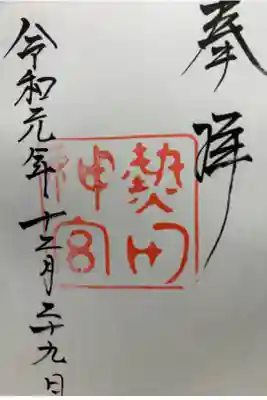 奉拝
熱田
神宮
令和元年十二月二十九日